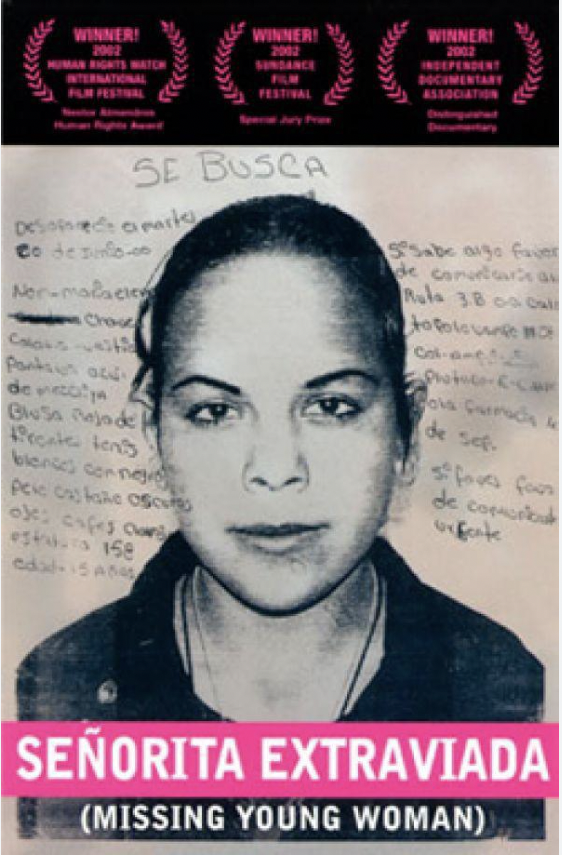 WINNER!
2002
HUMAN RIGHTS WATCH
INTERNATIONAL
FILM FESTIVAL
Nestor Almendros
Human Rights Award
WINNER!
2002
SUNDANCE
FILM
FESTIVAL
Special Jury Prize
WINNER!
2002
INDEPENDENT
DOCUMENTARY
ASSOCIATION
Distinguished
Documentary
SE BUSCA
el martes
20 de Junio-00
de mezclilla
Blusa Roja de
tirantes tenis
blancos con negro
pelo castaño oscuro
ojos cafes
estatura 158
edad-15 Años
Si Sabe algo favor
de comunicarse
Ruta 3B
de sep.
de
urgente
SEÑORITA EXTRAVIADA
(MISSING YOUNG WOMAN)